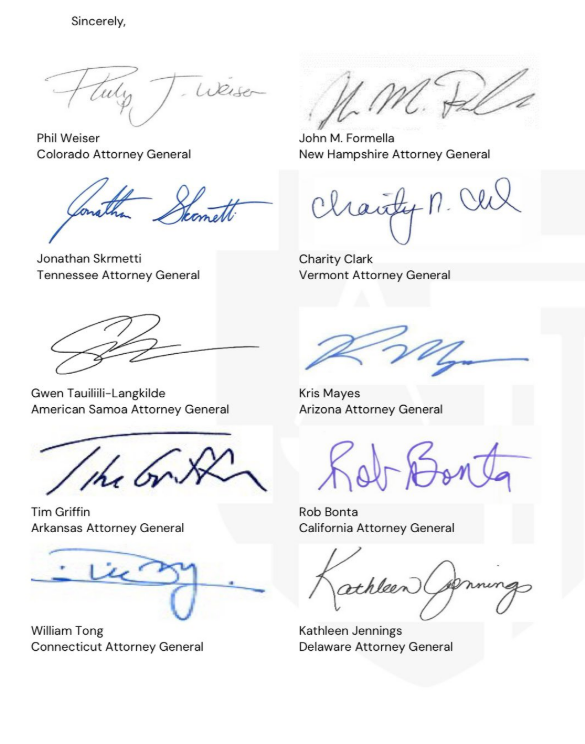 Sincerely,
Philip J. Weiser
Phil Weiser
Colorado Attorney General
John M. Formella
New Hampshire Attorney General
Jonathan Skrmetti
Jonathan Skrmetti
Tennessee Attorney General
Charity R. Clark
Charity Clark
Vermont Attorney General
Gwen Tauiliili-Langkilde
American Samoa Attorney General
Kris Mayes
Arizona Attorney General
Tim Griffin
Tim Griffin
Arkansas Attorney General
Rob Bonta
Rob Bonta
California Attorney General
William Tong
Connecticut Attorney General
Kathleen Jennings
Kathleen Jennings
Delaware Attorney General